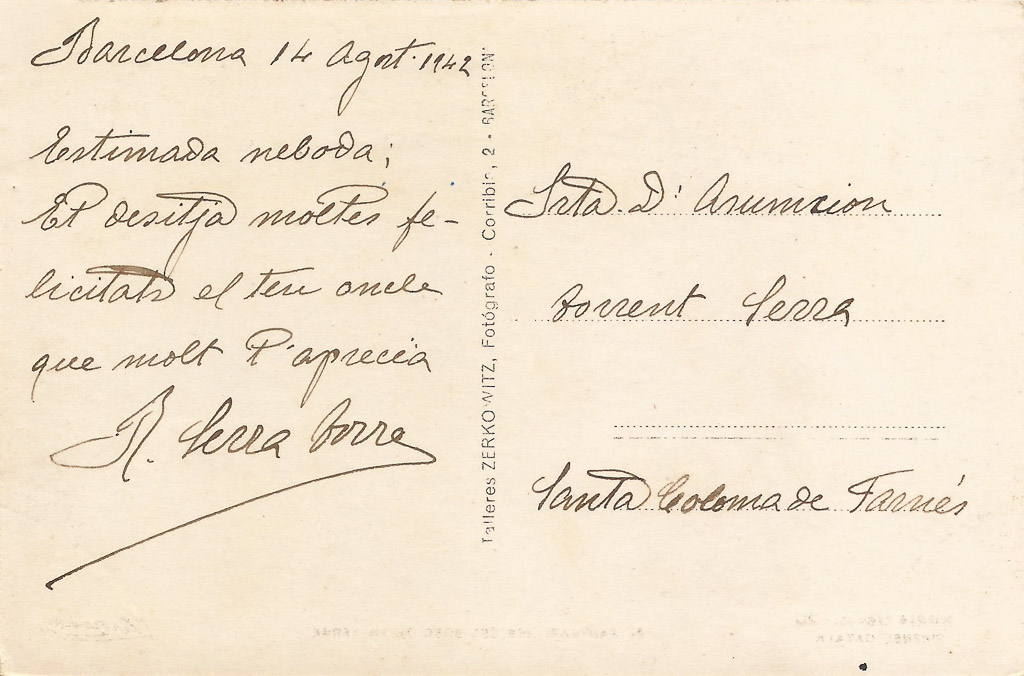 Barcelona 14 Agost 1942
Estimada neboda;
Et desitja moltes fe-
licitats el teu oncle
que molt t'aprecia
R. Serra Torra
Talleres ZERKOWITZ, Fotógrafo - Corribia, 2 - BARCELONA
Srta. Dª Asumcion
Torrent Serra
Santa Coloma de Farnés